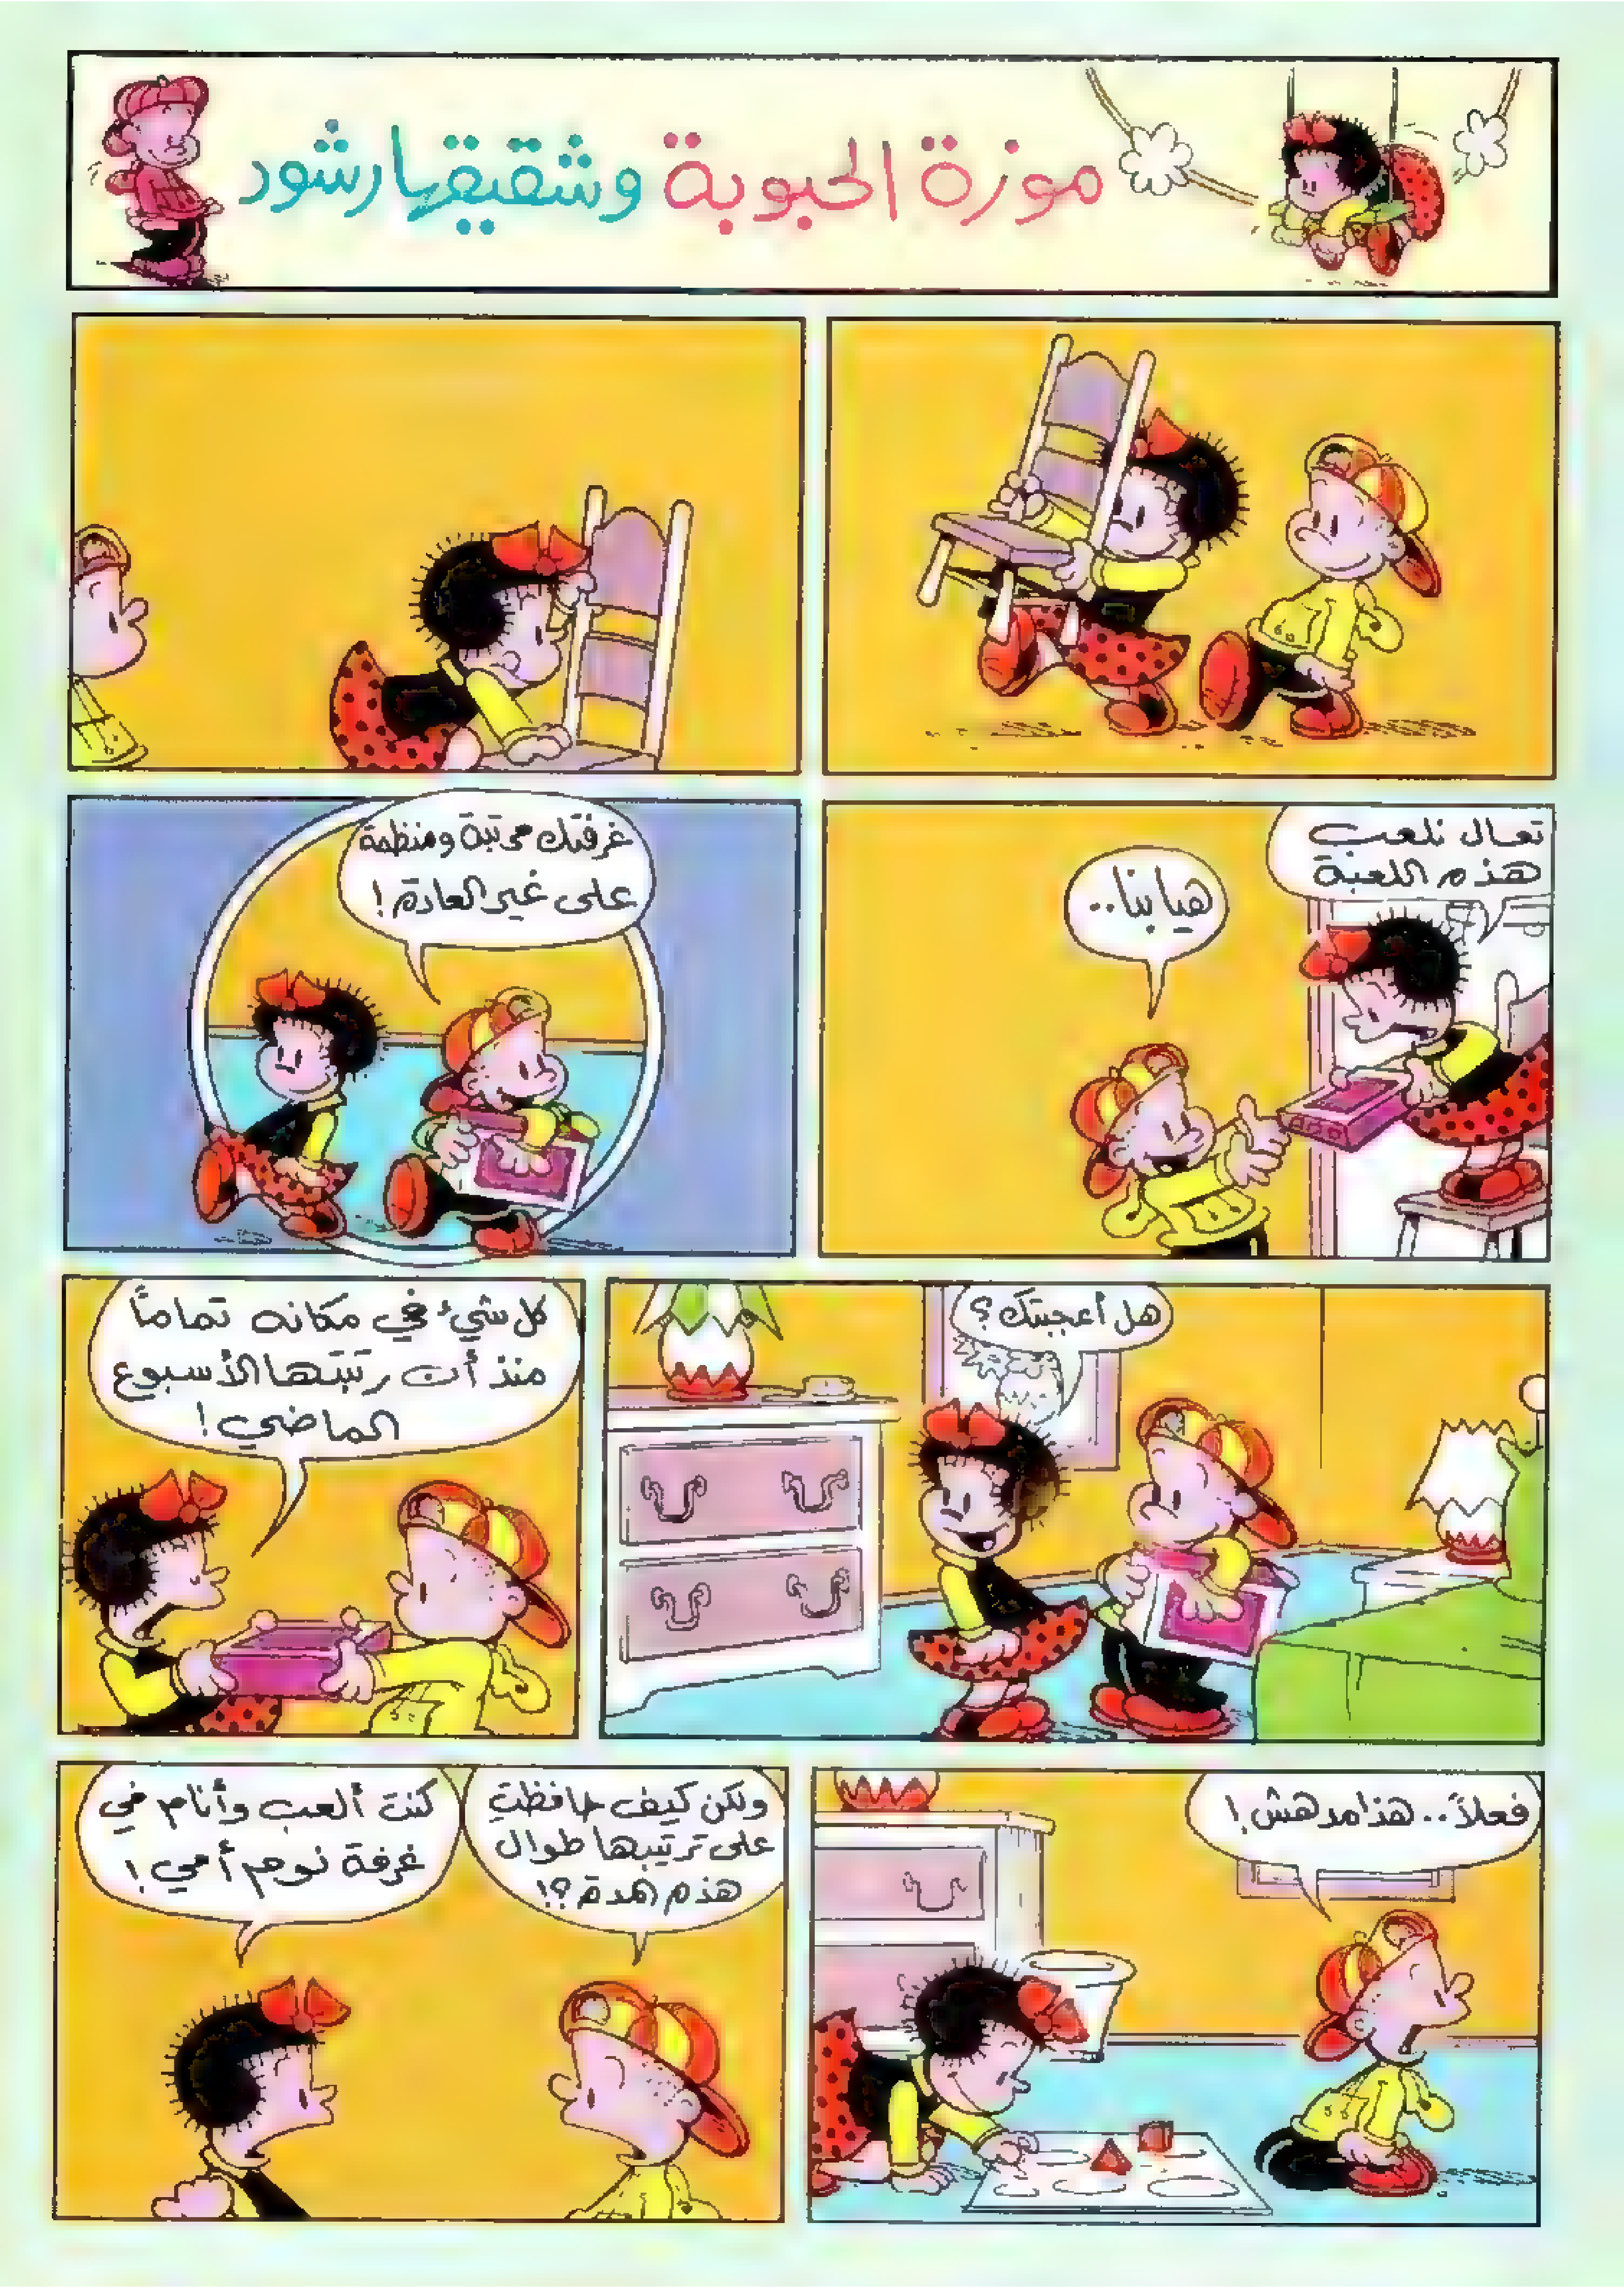 موزة الحبوبة وشقيقها رشود
تعال نلعب
هذه اللعبة
هيا بنا..
غرفتك مرتبة ومنظمة
على غير العادة!
هل أعجبتك؟
كل شيء في مكانه تماماً
منذ أن رتبتها الأسبوع
الماضي!
فعلاً.. هذا مدهش!
ولكن كيف حافظت
على ترتيبها طوال
هذه المدة؟!
كنت ألعب وأنام في
غرفة نوم أمي!